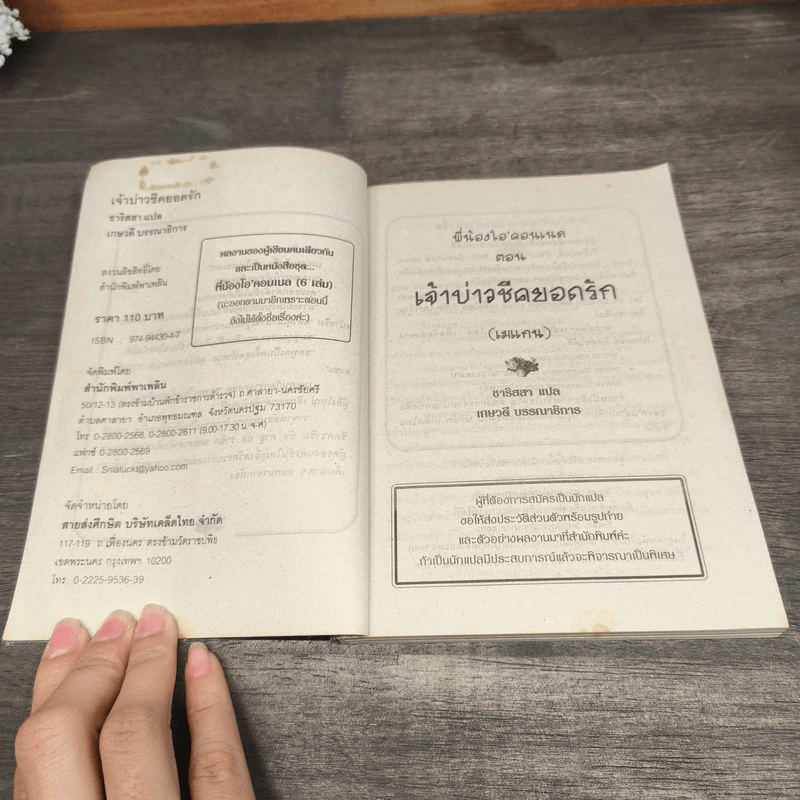 เจ้าบ่าวชีคยอดรัก
ชาริสสา แปล
เกษวดี บรรณาธิการ
สงวนลิขสิทธิ์โดย
สำนักพิมพ์พาเพลิน
ราคา 110 บาท
ISBN : 974-94430-4-7
ผลงานของผู้เขียนคนเดียวกัน
และเป็นหนังสือชุด...
พี่น้องโอ'คอนเนล (6 เล่ม)
(จะออกตามมาอีกเพราะตอนนี้
ยังไม่ได้ตั้งชื่อเรื่องค่ะ)
จัดพิมพ์โดย
สำนักพิมพ์พาเพลิน
50/12-13 (ตรงข้ามบ้านพักข้าราชการตำรวจ) ถ.ศาลายา-นครชัยศรี
ตำบลศาลายา อำเภอพุทธมณฑล จังหวัดนครปฐม 73170
โทร. 0-2800-2568, 0-2800-2611 (9.00-17.30 น. จ-ศ)
แฟกซ์ 0-2800-2569
Email : Srilaluckt@yahoo.com
จัดจำหน่ายโดย
สายส่งศึกษิต บริษัทเคล็ดไทย จำกัด
117-119 ถ.เฟื่องนคร ตรงข้ามวัดราชบพิธ
เขตพระนคร กรุงเทพฯ 10200
โทร. 0-2225-9536-39
พี่น้องโอ'คอนเนล
ตอน
เจ้าบ่าวชีคยอดรัก
(เมแกน)
ชาริสสา แปล
เกษวดี บรรณาธิการ
ผู้ที่ต้องการสมัครเป็นนักแปล
ขอให้ส่งประวัติส่วนตัวพร้อมรูปถ่าย
และตัวอย่างผลงานมาที่สำนักพิมพ์ค่ะ
ถ้าเป็นนักแปลมีประสบการณ์แล้วจะพิจารณาเป็นพิเศษ